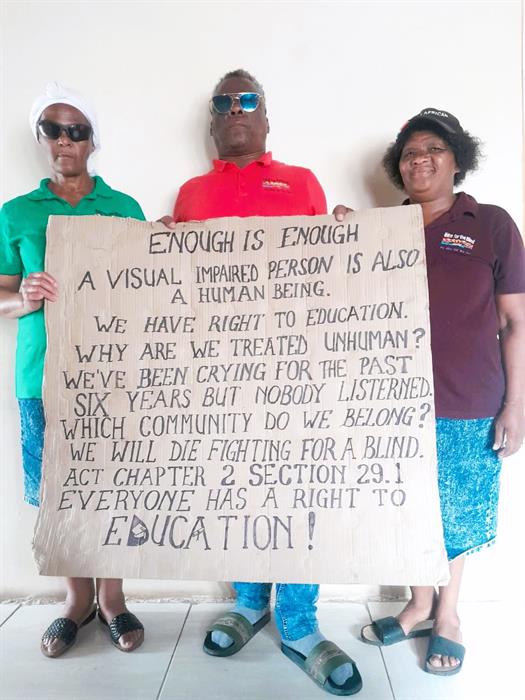 AFRICAN
ENOUGH IS ENOUGH
A VISUAL IMPAIRED PERSON IS ALSO
A HUMAN BEING.
WE HAVE RIGHT TO EDUCATION.
WHY ARE WE TREATED UNHUMAN?
WE'VE BEEN CRYING FOR THE PAST
SIX YEARS BUT NOBODY LISTERNED.
WHICH COMMUNITY DO WE BELONG?
WE WILL DIE FIGHTING FOR A BLIND.
ACT CHAPTER 2 SECTION 29.1
EVERYONE HAS A RIGHT TO
EDUCATION!